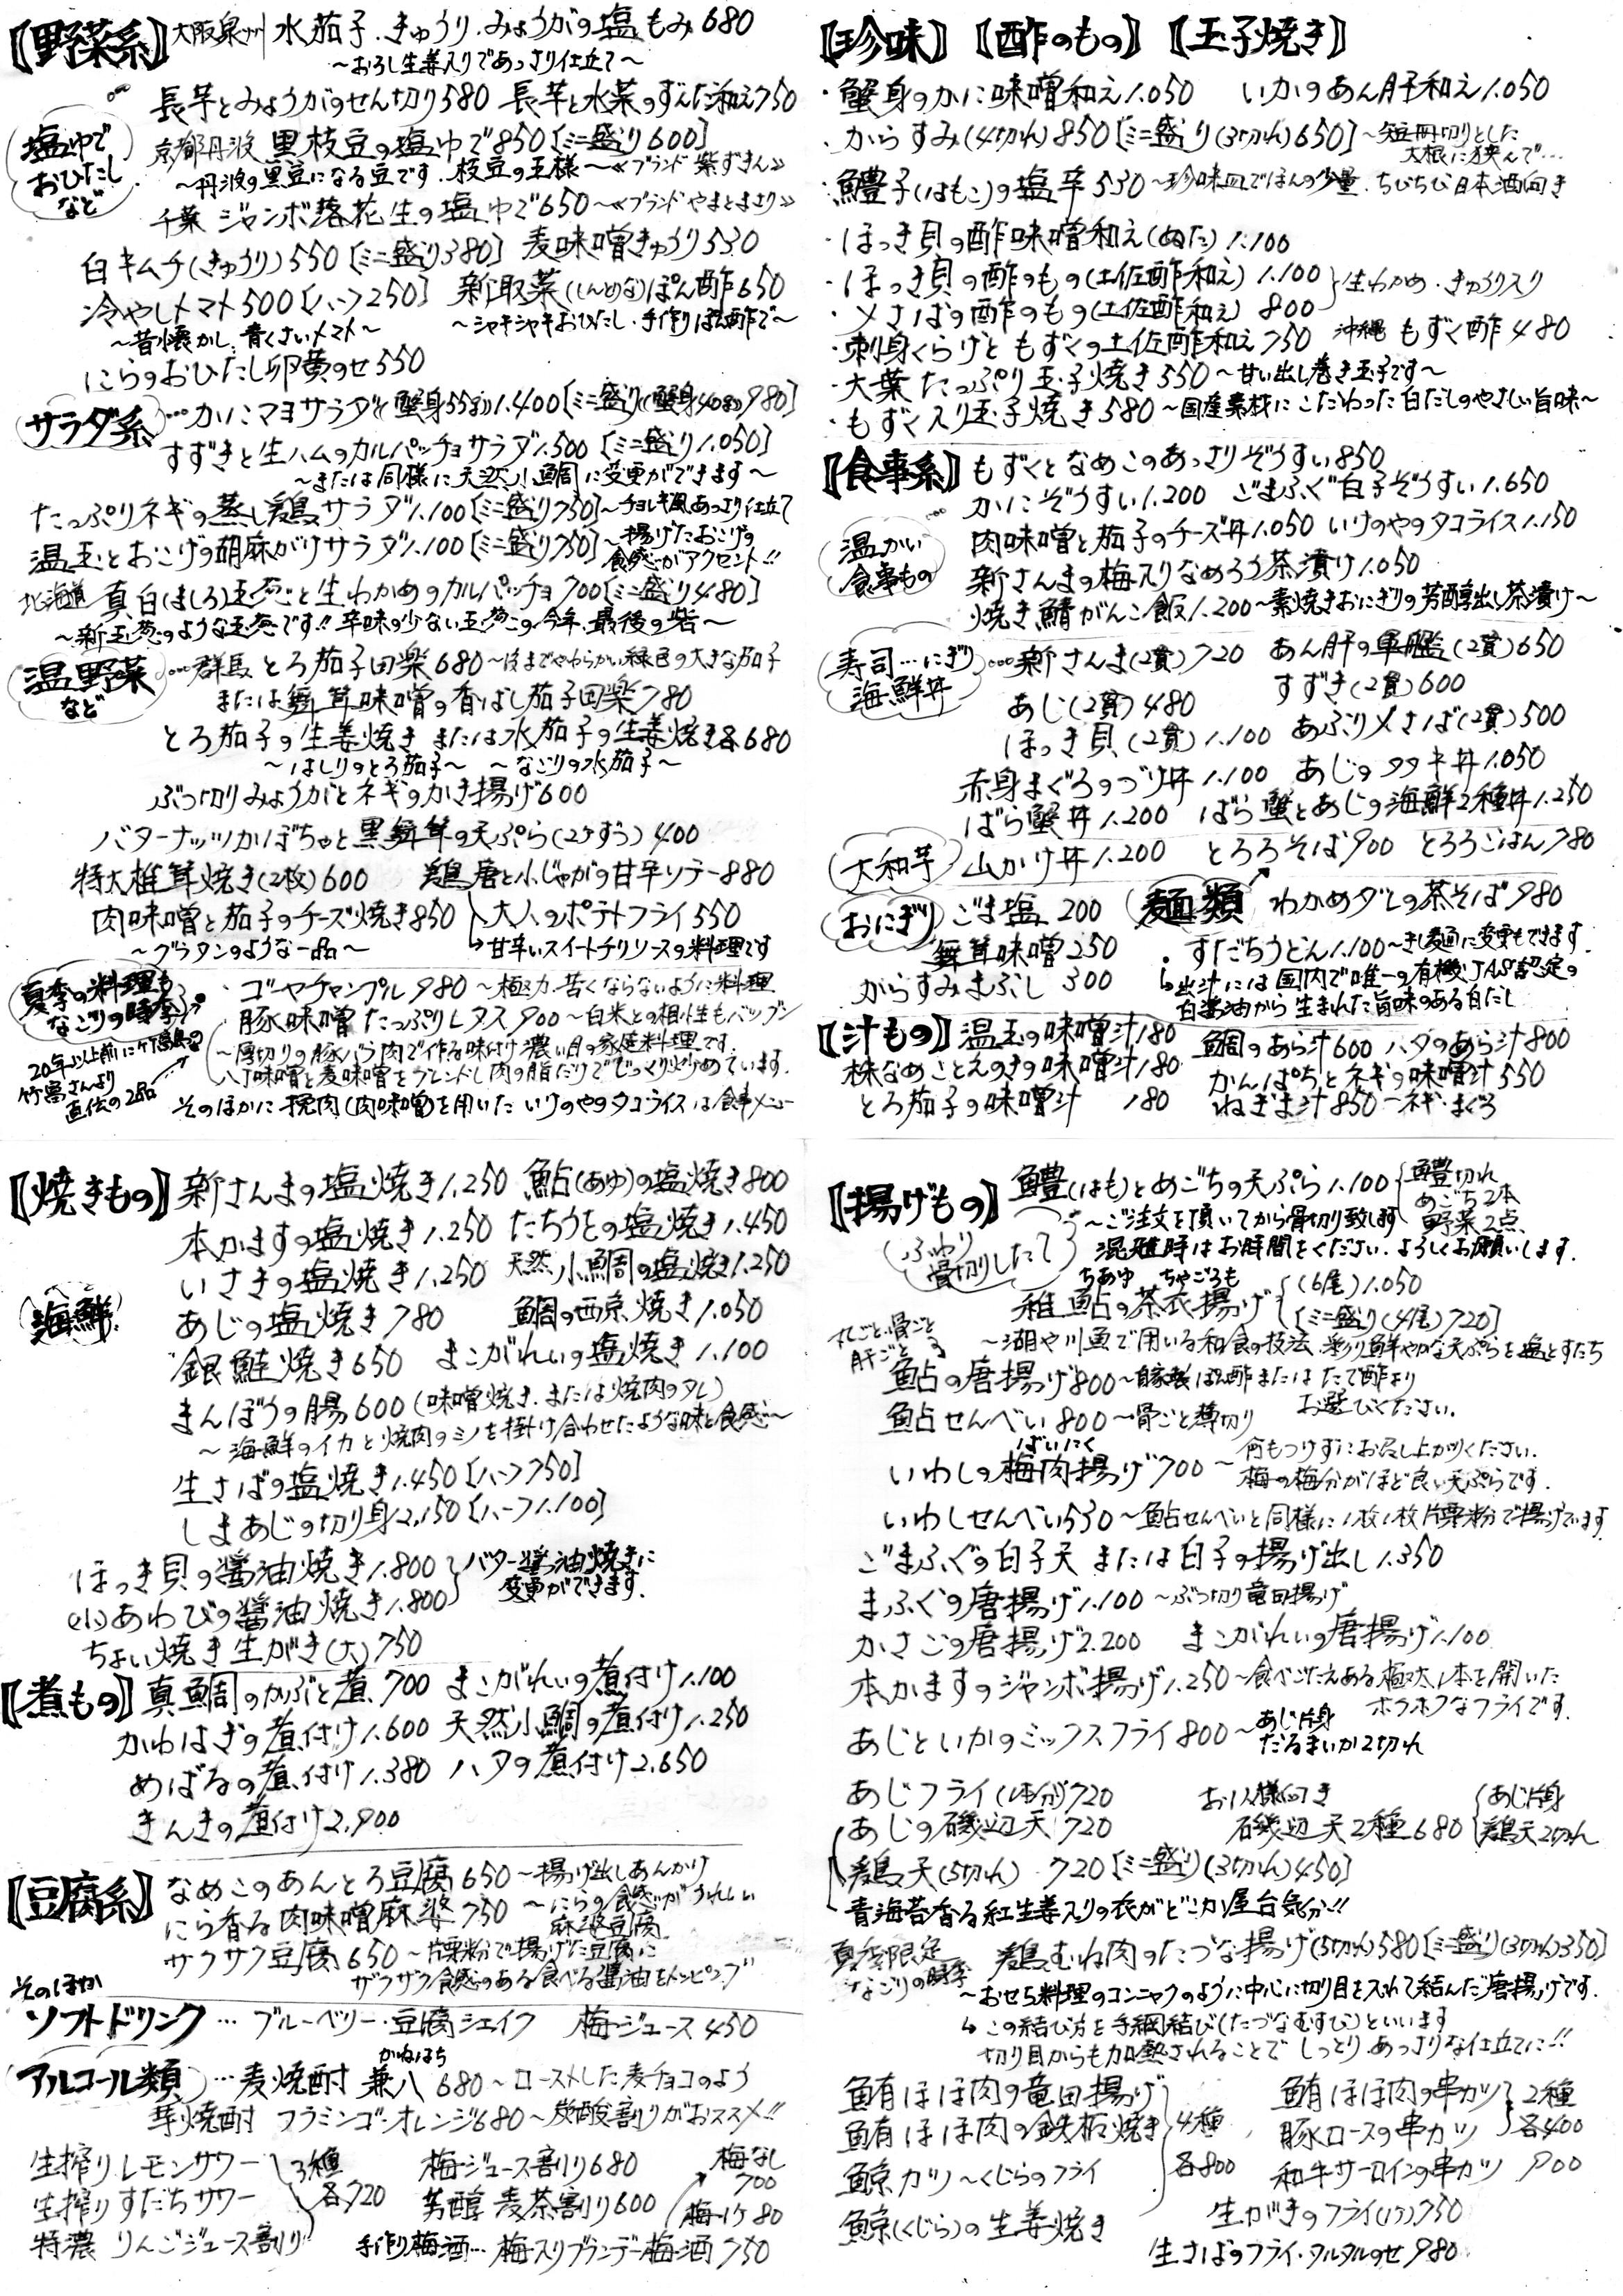 【野菜系】大阪泉州 水茄子.きゅうり.みょうがの塩もみ680
～おろし生姜入りであっさり仕立て～
塩ゆで
おひたし
など
長芋とみょうがのせん切り580 長芋と水菜のずんだ和え750
京都丹波 黒枝豆の塩ゆで850[ミニ盛り600]
～丹波の黒豆になる豆です.枝豆の王様～≪ブランド 紫ずきん≫
千葉 ジャンボ落花生の塩ゆで650～≪ブランドやまとまさり≫
白キムチ(きゅうり)550[ミニ盛り380] 麦味噌きゅうり530
冷やしトマト500[ハーフ250] 新取菜(しんとりな)ぽん酢650
～昔懐かし.青くさいトマト～ ～シャキシャキおひたし.手作りぽん酢で～
にらのおひたし卵黄のせ550
サラダ系…かにマヨサラダ(蟹身55g)1.400[ミニ盛り(蟹身40g)980]
すずきと生ハムのカルパッチョサラダ1.500[ミニ盛り1.050]
～または同様に天然小鯛に変更ができます～
たっぷりネギの蒸し鶏サラダ1.100[ミニ盛り750]～チョレギ風あっさり仕立て
温玉とおこげの胡麻だけサラダ1.100[ミニ盛り750]～揚げたおこげの
食感がアクセント!!
北海道 真白(ましろ)玉葱と生わかめのカルパッチョ700[ミニ盛り480]
～新玉葱のような玉葱です!!辛味の少ない玉葱この今年.最後の砦～
温野菜
など
…群馬 とろ茄子田楽680～はまでやわらかい緑色の大きな茄子
または舞茸味噌の香ばし茄子田楽780
とろ茄子の生姜焼き または水茄子の生姜焼き各680
～はしりのとろ茄子～ ～なごりの水茄子～
ぶつ切りみょうがとネギのかき揚げ600
バターナッツかぼちゃと黒舞茸の天ぷら(2ケずつ)400
特大椎茸焼き(2枚)600 鶏唐と小じゃがの甘辛ソテー880
肉味噌と茄子のチーズ焼き850 大人のポテトフライ550
～グラタンのような一品～ →甘辛いスイートチリソースの料理です
夏季の料理も
なごりの時季
・ゴーヤチャンプル980～極力.苦くならないように料理
豚味噌たっぷりレタス900～白米との相性もバツグン
～厚切りの豚バラ肉で作る味付け濃い目の家庭料理です.
八丁味噌と麦味噌をブレンドし肉の脂だけでじっくり炒めています.
20年以上前に竹富島の
竹富さんより
直伝の2品
そのほかに挽肉(肉味噌)を用いた いけのやのタコライスは食事メニュー
【珍味】【酢のもの】【玉子焼き】
・蟹身のかに味噌和え1.050 いかのあん肝和え1.050
・からすみ(4切れ)850[ミニ盛り(3切れ)650]～短冊切りとした
大根に挟んで…
・鱧子(はもこ)の塩辛530～珍味皿でほんの少量.ちびちび日本酒向き
・ほっき貝の酢味噌和え(ぬた)1.100
・ほっき貝の酢のもの(土佐酢和え)1.100
・〆さばの酢のもの(土佐酢和え)800 }生わかめ.きゅうり入り
・刺身くらげともずくの土佐酢和え750 沖縄 もずく酢480
・大葉たっぷり玉子焼き550～甘い出し巻き玉子です～
・もずく入り玉子焼き580～国産素材にこだわった白だしのやさしい旨味～
【食事系】もずくとなめこのあっさりぞうすい850
かにぞうすい1.200 ごまふぐ白子ぞうすい1.650
温かい
食事もの
肉味噌と茄子のチーズ丼1.050 いけのやのタコライス1.150
新さんまの梅入りなめろう茶漬け1.050
焼き鯖がんこ飯1.200～素焼きおにぎりの芳醇出し茶漬け～
寿司…にぎり
海鮮丼
…新さんま(2貫)720 あん肝の軍艦(2貫)650
あじ(2貫)480 すずき(2貫)600
ほっき貝(2貫)1.100 あぶり〆さば(2貫)500
赤身まぐろのづけ丼1.100 あじのタタキ丼1.050
ばら蟹丼1.200 ばら蟹とあじの海鮮2種丼1.250
大和芋 山かけ丼1.200 とろろそば900 とろろごはん780
おにぎり ごま塩 200 麺類 わかめダレの茶そば980
舞茸味噌250 ・すだちうどん1.100～きし麺に変更もできます.
からすみまぶし 300 →出汁には国内で唯一の有機JAS認定の
白醤油から生まれた旨味のある白だし
【汁もの】温玉の味噌汁180 鯛のあら汁600 ハタのあら汁800
株なめことえのきの味噌汁180 かんぱちとネギの味噌汁550
とろ茄子の味噌汁 180 ねぎま汁850～ネギ.まぐろ
【焼きもの】新さんまの塩焼き1.250 鮎(あゆ)の塩焼き800
本かますの塩焼き1.250 たちうおの塩焼き1.450
いさきの塩焼き1.250 天然小鯛の塩焼き1.250
海鮮
あじの塩焼き780 鯛の西京焼き1.050
銀鮭焼き650 まこがれいの塩焼き1.100
まんぼうの腸600(味噌焼き.または焼肉のタレ)
～海鮮のイカと焼肉のミノを掛け合わせたような味と食感～
生さばの塩焼き1.450[ハーフ750]
しまあじの切り身2.150[ハーフ1.100]
ほっき貝の醤油焼き1.800
(小)あわびの醤油焼き1.800 }バター醤油焼きに
変更ができます.
ちょい焼き生がき(大)750
【煮もの】真鯛のかぶと煮700 まこがれいの煮付け1.100
かわはぎの煮付け1.600 天然小鯛の煮付け1.250
めばるの煮付け1.380 ハタの煮付け2.650
きんきの煮付け2.900
【豆腐系】なめこのあんとろ豆腐650～揚げ出しあんかけ
にら香る肉味噌麻婆750 ～にらの食感がうれしい
麻婆豆腐
サクサク豆腐650～片栗粉で揚げた豆腐に
ザクザク食感のある食べる醤油をトッピング
そのほか
ソフトドリンク…ブルーベリー.豆腐シェイク 梅ジュース450
アルコール類…麦焼酎 兼八(かねはち)680～ローストした麦チョコのよう
芋焼酎 フラミンゴオレンジ680～炭酸割りがおススメ!!
生搾りレモンサワー
生搾りすだちサワー
特濃 りんごジュース割り
3種
各720
梅ジュース割り680
芳醇 麦茶割り600
梅なし
700
梅1ケ80
手作り梅酒…梅入りブランデー梅酒750
【揚げもの】鱧(はも)とめごちの天ぷら1.100{鱧切れ
めごち2本
野菜2点
ふわり
骨切りしたて
～ご注文を頂いてから骨切り致します
混雑時はお時間をください.よろしくお願いします.
稚鮎(ちあゆ)の茶衣(ちゃごろも)揚げ{(6尾)1.050
[ミニ盛り(4尾)720]
丸ごと.骨ごと
肝ごと
～湖や川魚で用いる和食の技法.彩り鮮やかな天ぷらを塩とすだち
鮎の唐揚げ800～自家製ぽん酢またはたで酢より
お選びください.
鮎せんべい800～骨ごと薄切り
いわしの梅肉(ばいにく)揚げ700～何もつけずにお召し上がりください.
梅の塩分がほど良い天ぷらです.
いわしせんべい530～鮎せんべいと同様に1枚1枚片栗粉で揚げています
ごまふぐの白子天 または白子の揚げ出し1.350
まふぐの唐揚げ1.100～ぶつ切り竜田揚げ
かさごの唐揚げ2.200 まこがれいの唐揚げ1.100
本かますのジャンボ揚げ1.250～食べごたえある極太1本を開いた
ホクホクなフライです.
あじといかのミックスフライ800～あじ片身
だるまいか2切れ
あじフライ(1本分)720 お1人様向き
あじの磯辺天720 磯辺天2種680{あじ片身
鶏天2切れ
鶏天(5切れ) 720[ミニ盛り(3切れ)450]
青海苔香る紅生姜入りの衣がどこか屋台気分!!
夏季限定
なごりの時季
鶏むね肉のたづな揚げ(5切れ)580[ミニ盛り(3切れ)350]
～おせち料理のコンニャクのように中心に切り目を入れて結んだ唐揚げです.
→この結び方を手綱結び(たづなむすび)といいます
切り目からも加熱されることでしっとり.あっさりな仕立てに!!
鮪ほほ肉の竜田揚げ
鮪ほほ肉の鉄板焼き
鯨カツ～くじらのフライ
鯨(くじら)の生姜焼き
4種
各800
鮪ほほ肉の串カツ
豚ロースの串カツ
2種
各400
和牛サーロインの串カツ 900
生がきのフライ(1ケ)750
生さばのフライ.タルタルのせ980